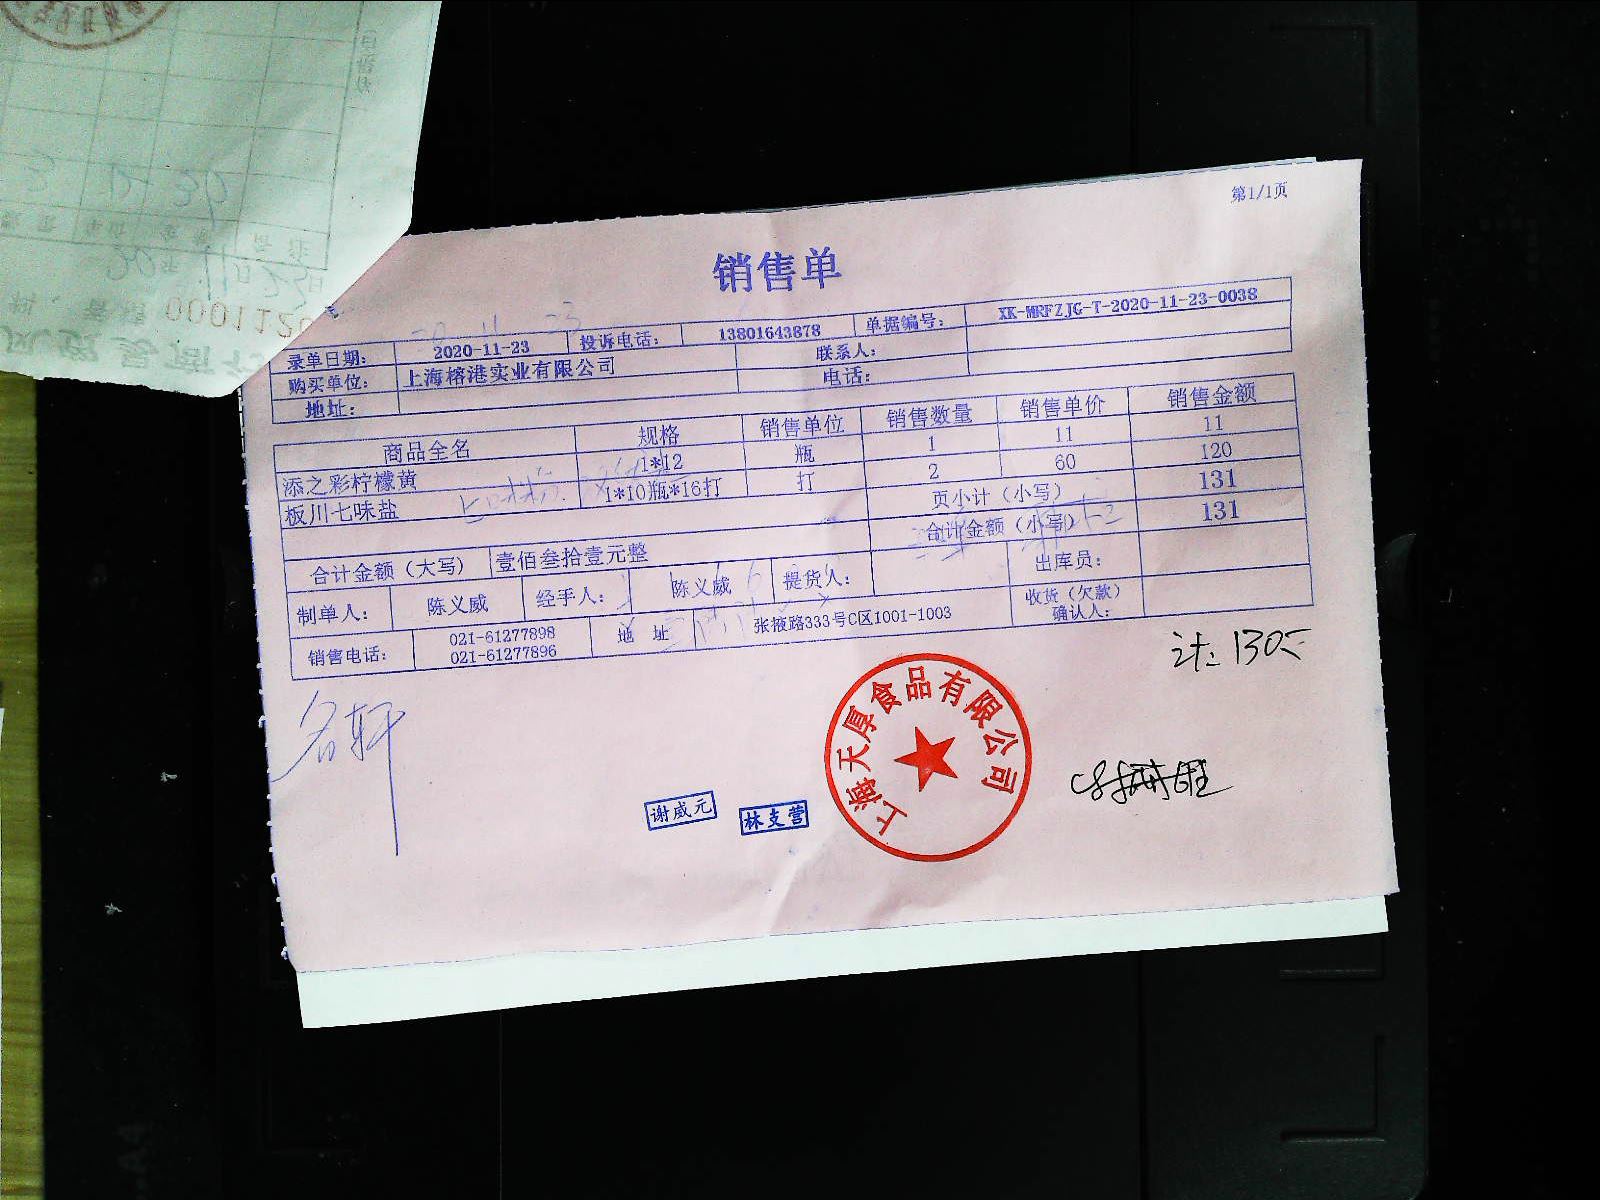 第1/1页
销售单
录单日期： 2020-11-23 投诉电话： 13801643878 单据编号： XK-MRFZJG-T-2020-11-23-0038
购买单位： 上海榕港实业有限公司 联系人：
地址： 电话：
商品全名 规格 销售单位 销售数量 销售单价 销售金额
添之彩柠檬黄 1*12 瓶 1 11 11
板川七味盐 1*10瓶*16打 打 2 60 120
页小计（小写） 131
合计金额（大写） 壹佰叁拾壹元整 合计金额（小写） 131
制单人： 陈义威 经手人： 陈义威 提货人： 出库员：
销售电话： 021-61277898 021-61277896 地 址 张掖路333号C区1001-1003 收货（欠款）确认人：
计：130
名轩
谢威元 林支营
上海天厚食品有限公司
0001120